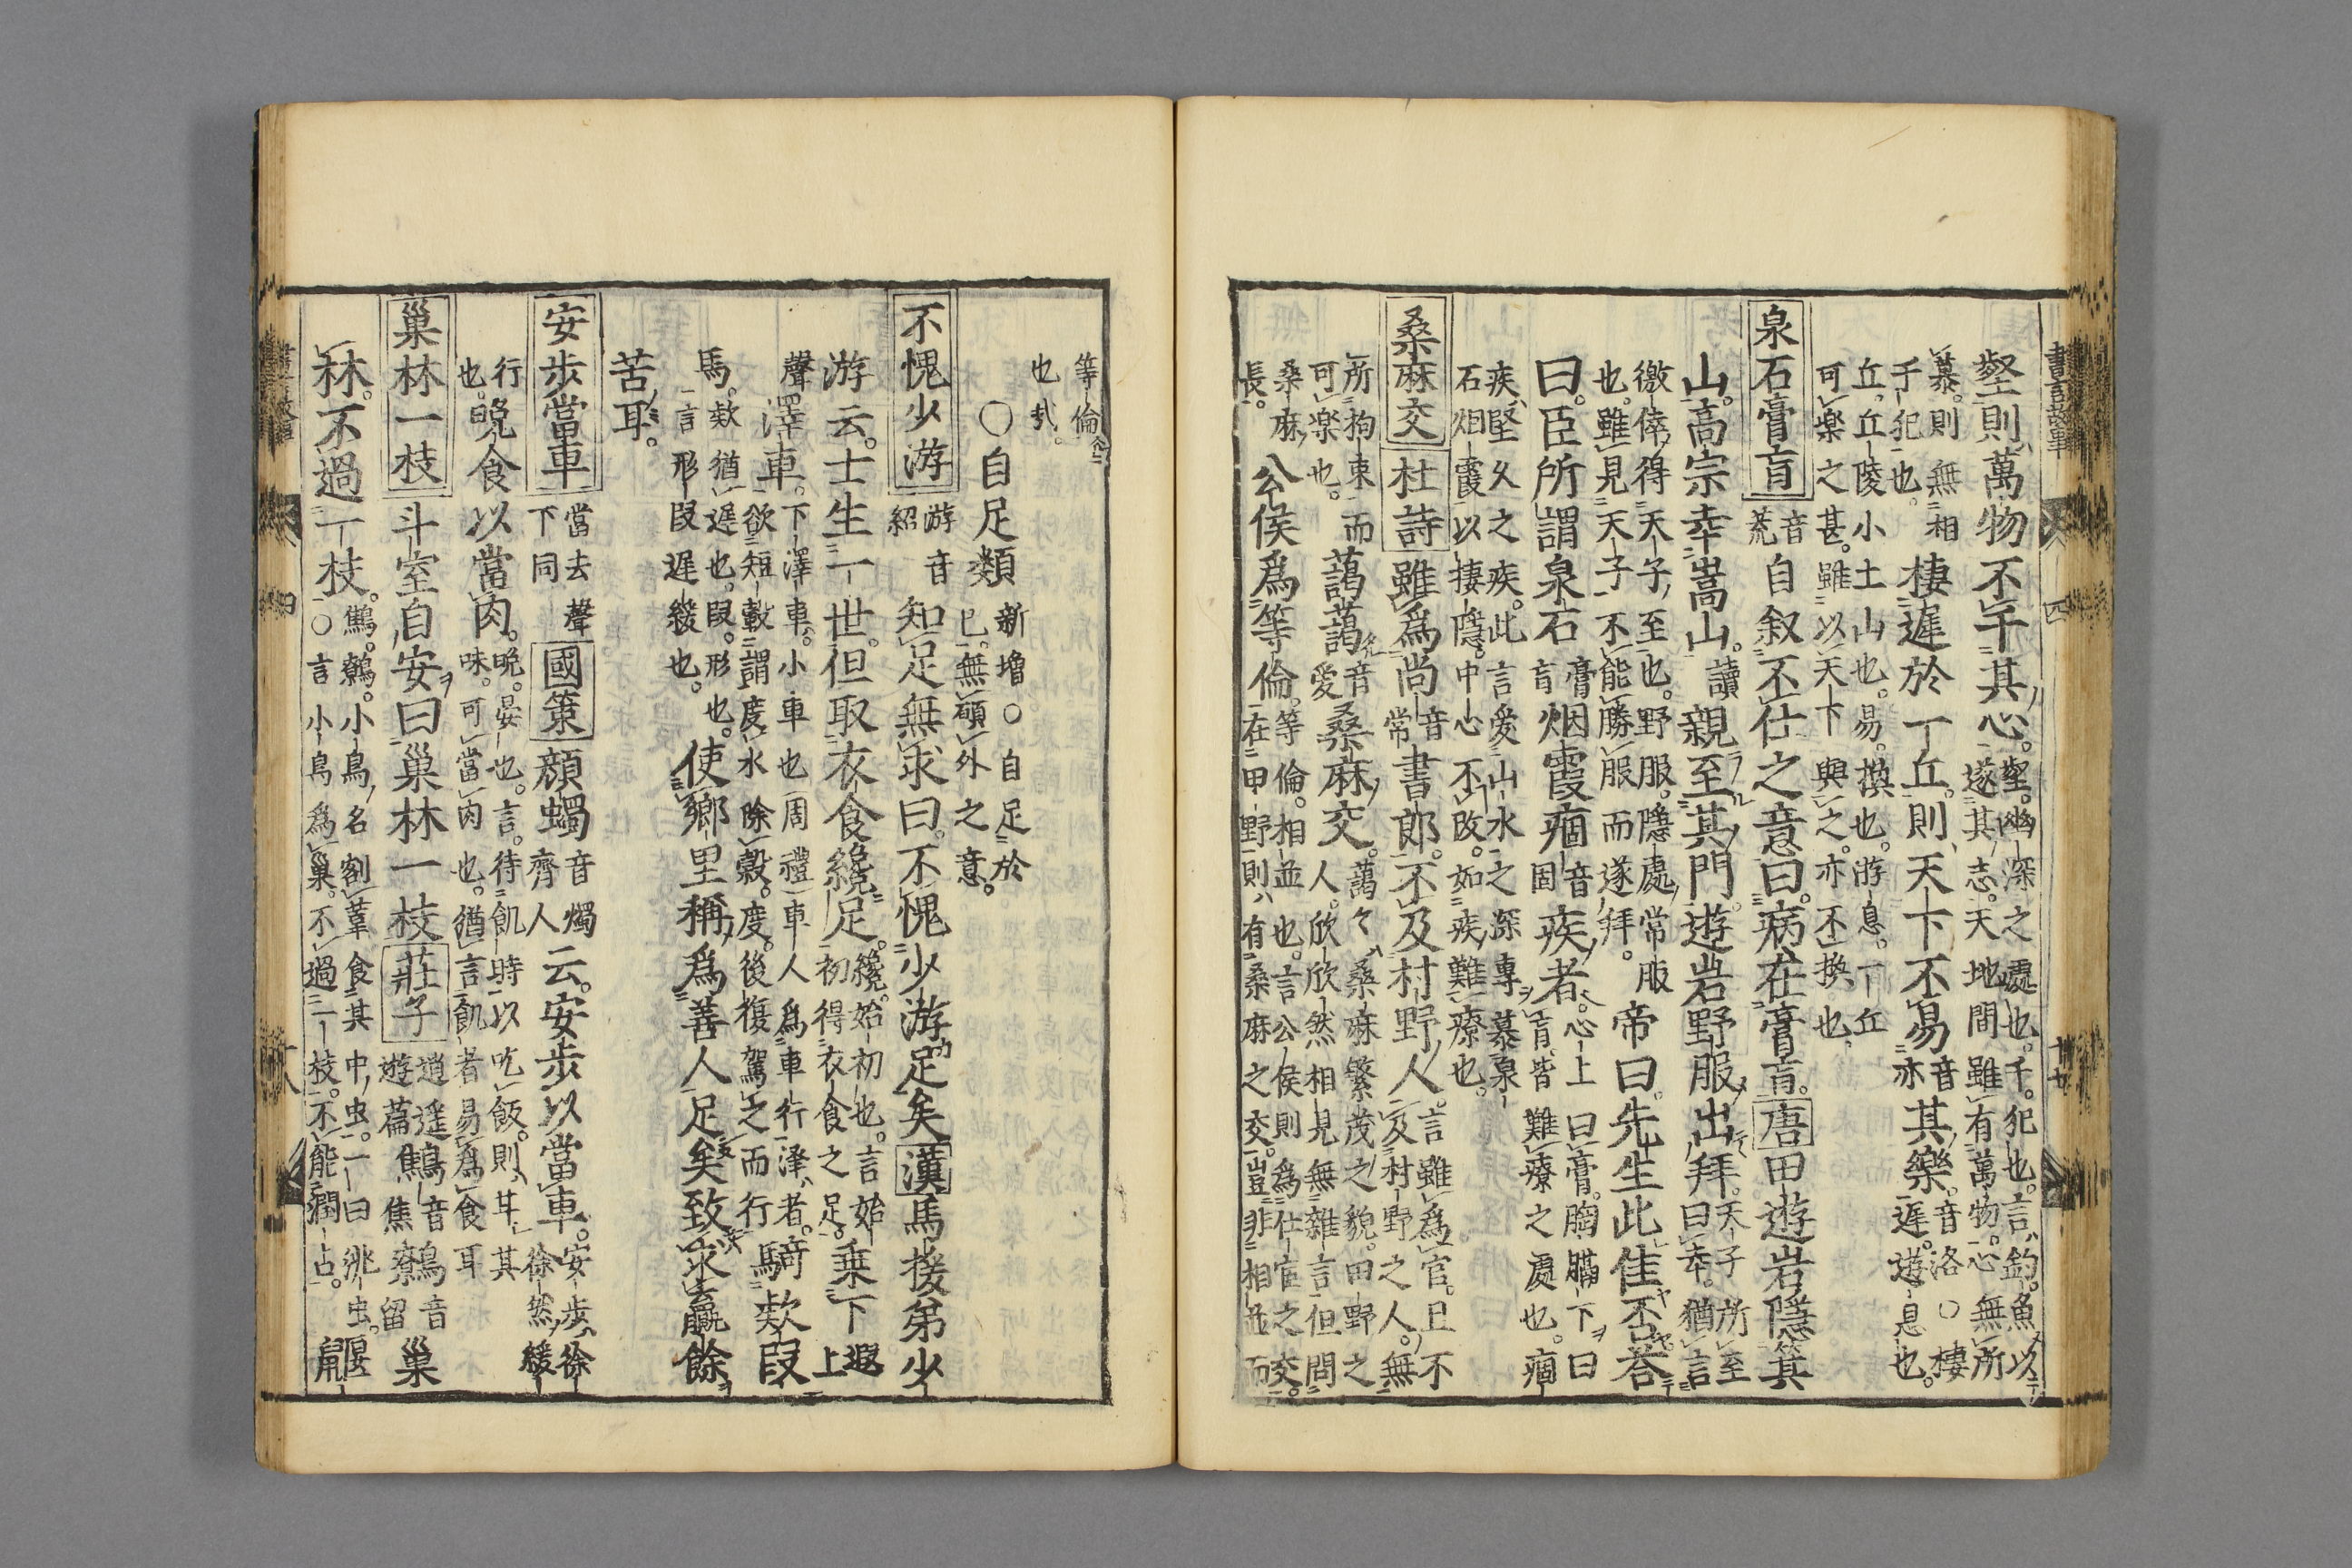 書言故事 四 十七
壑則萬物不干其心。壑。幽深之處也。干。犯也。言釣。魚以
遂其志。天地間雖有萬物。心無所
慕。則無相
干犯也。棲遲於一丘。則天下不易音亦其樂。音洛○棲遲。遊息也。
丘。丘陵小土山也。易。換也。游息一丘
可樂之甚。雖以天下與之。亦不換也
泉石膏肓音荒自叙不仕之意曰。病在膏肓。唐田遊岩隱箕
山。高宗幸嵩山。讀親至其門。遊岩野服出拜。天子所至曰幸。猶言
徼倖得天子至也。野服。隱處常服
也。雖見天子不能勝服而遂拜。帝曰。先生此佳不。荅
曰。臣所謂泉石膏肓烟霞痼音固疾者。心上曰膏。胸膈下曰
肓。皆難療之處也。痼
疾。堅久之疾。此言愛山水之深專慕泉
石烟霞以棲隱。中心不改。如疾難療也。
桑麻交杜詩雖爲尚音常書郎。不及村野人。言雖爲官。且不
及村野之人。無
所拘束而
可樂也。藹藹音愛桑麻交。藹々。桑麻繁茂之貌。田野之
人。欣欣然相見無雜言但問
桑麻
長。公侯爲等倫。等倫。相並也。言公侯則爲仕宦之交。
在田野則有桑麻之交。豈非相並而
等倫
也哉。
○自足類新増○自足於
已。無願外之意。
不愧少游游音
紹知足無求曰。不愧少游足矣漢馬援弟少
游云。士生一世。但取衣食纔足。纔。始初也。言始
初得衣食之足。乗下遐
上
聲澤車。下澤車。小車也周禮車人爲車行澤者。
欲短轂謂度水除轂。度。後復駕之而行騎欵段
馬。欵猶遲也。段。形也。
言形段遲緩也。使鄉里稱爲善人足矣致求贏餘
苦耳。
安歩當車當去聲
下同國策顔蠋音燭
齊人云。安歩以當車。安歩。徐
徐然緩
行
也。晩食以當肉。晩。晏也。言。待飢時以吃飯。則甘其
味。可當肉也。猶言飢者易爲食耳
巢林一枝斗室自安曰巢林一枝莊子逍遥
遊篇鷦音
焦鷯音
留巢
林。不過一枝。鷦。鷯。小鳥名割葦食其中虫。一曰桃虫。偃
○言小鳥爲巢。不過一枝。不能濶占。鼠
十八